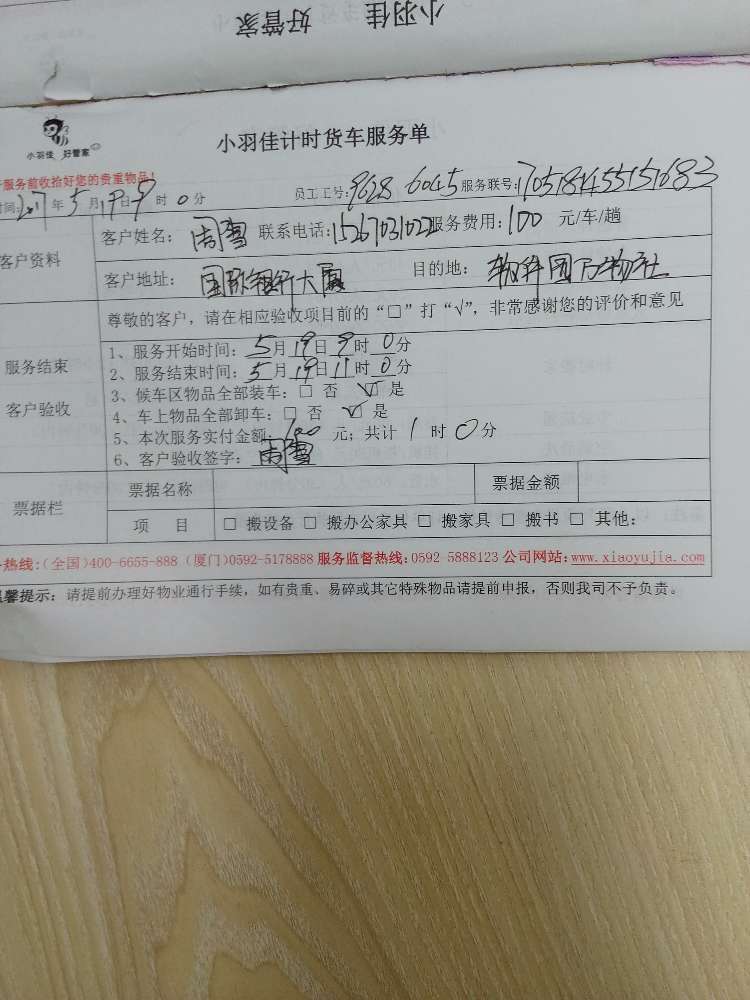 小羽佳 好管家
小羽佳 好管家
小羽佳计时货车服务单
服务前收拾好您的贵重物品!
时间:2017年5月19日9时0分 员工工号:9628 6045 服务联号:1705181455151683
客户资料
客户姓名: 周雪 联系电话:15267031022 服务费用:100 元/车/趟
客户地址: 国际银行大厦 目的地: 软件园
尊敬的客户,请在相应验收项目前的“□”打“√”,非常感谢您的评价和意见
服务结束
客户验收
1、服务开始时间:5月19日9时0分
2、服务结束时间:5月19日11时0分
3、候车区物品全部装车:□ 否 ☑ 是
4、车上物品全部卸车:□ 否 ☑ 是
5、本次服务实付金额 100 元;共计 1 时 0 分
6、客户验收签字:周雪
票据栏
票据名称 票据金额
项 目 □ 搬设备 □ 搬办公家具 □ 搬家具 □ 搬书 □ 其他:
热线:(全国)400-6655-888 (厦门)0592-5178888 服务监督热线:0592-5888123 公司网站:www.xiaoyujia.com
温馨提示:请提前办理好物业通行手续,如有贵重、易碎或其它特殊物品请提前申报,否则我司不予负责。